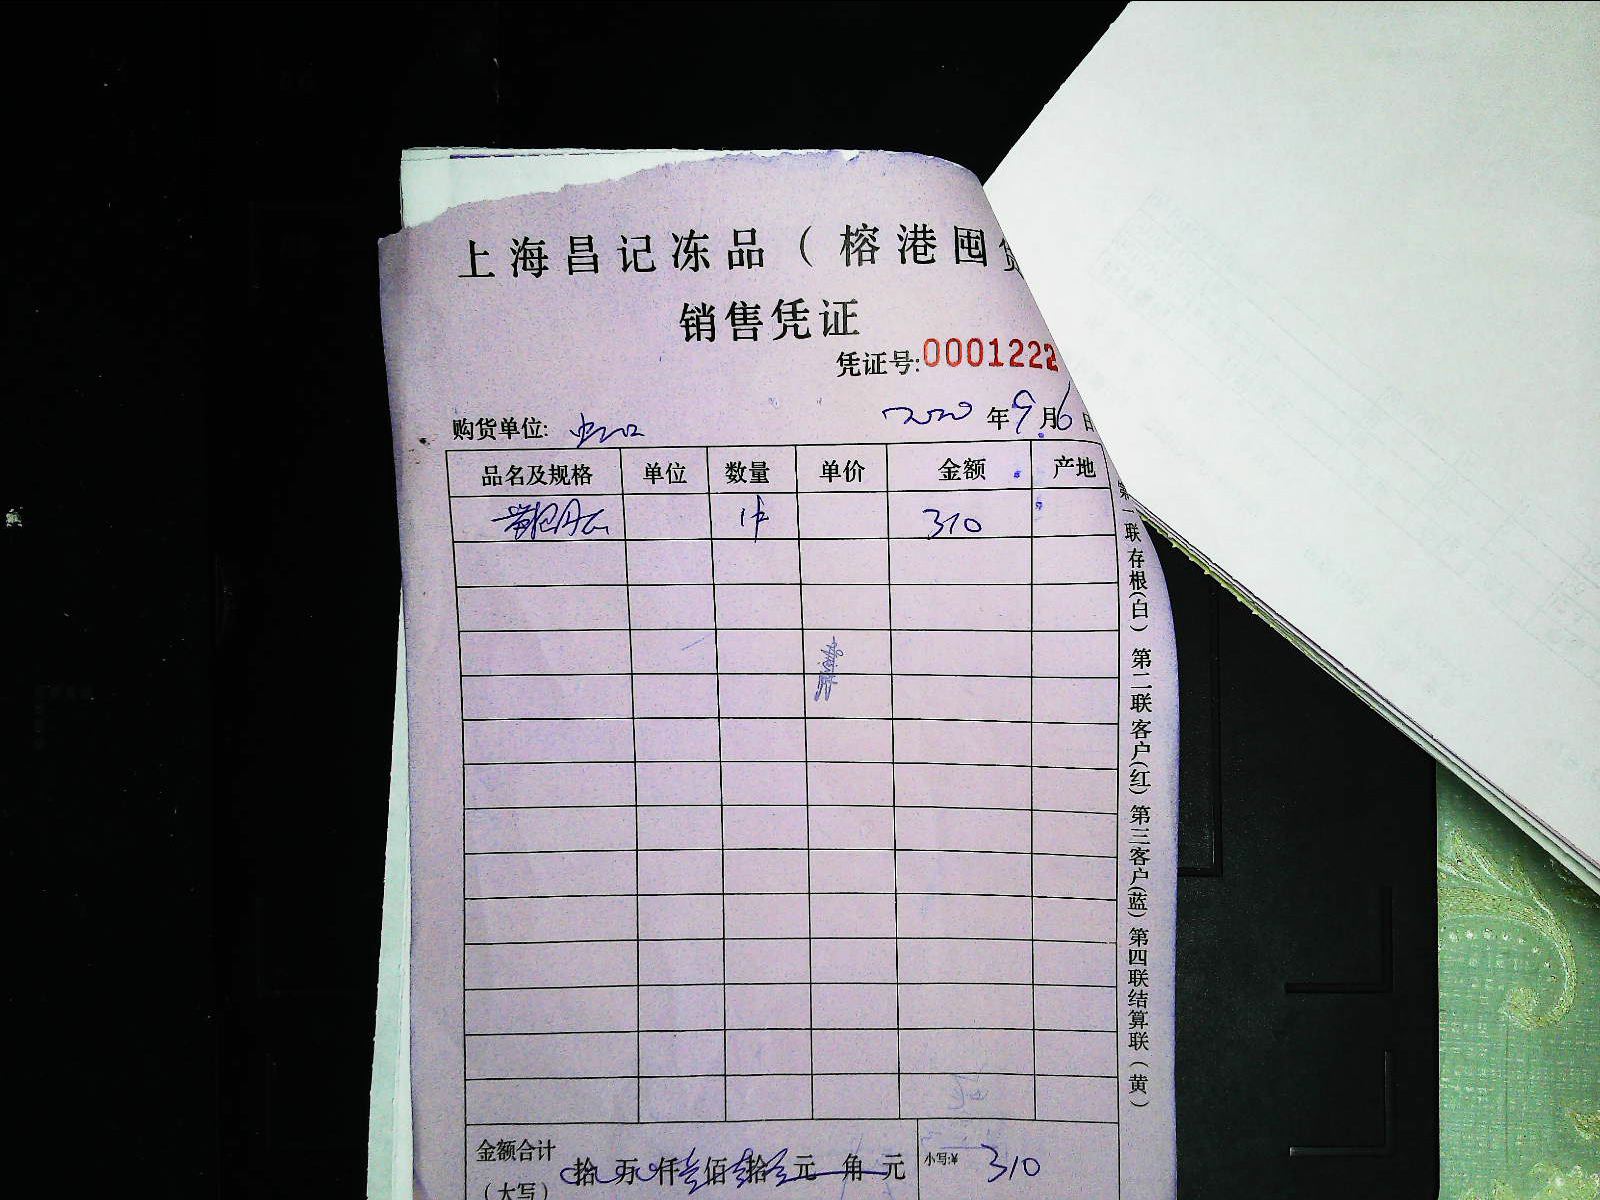 上海昌记冻品（榕港囤货
销售凭证
凭证号:0001222
2020年9月6日
购货单位: 虹口
品名及规格 单位 数量 单价 金额 产地
1件 310
第一联存根(白) 第二联客户(红) 第三客户(蓝) 第四联结算联(黄)
金额合计
(大写)
拾 万 仟 佰 拾 元 角 元
小写:¥ 310